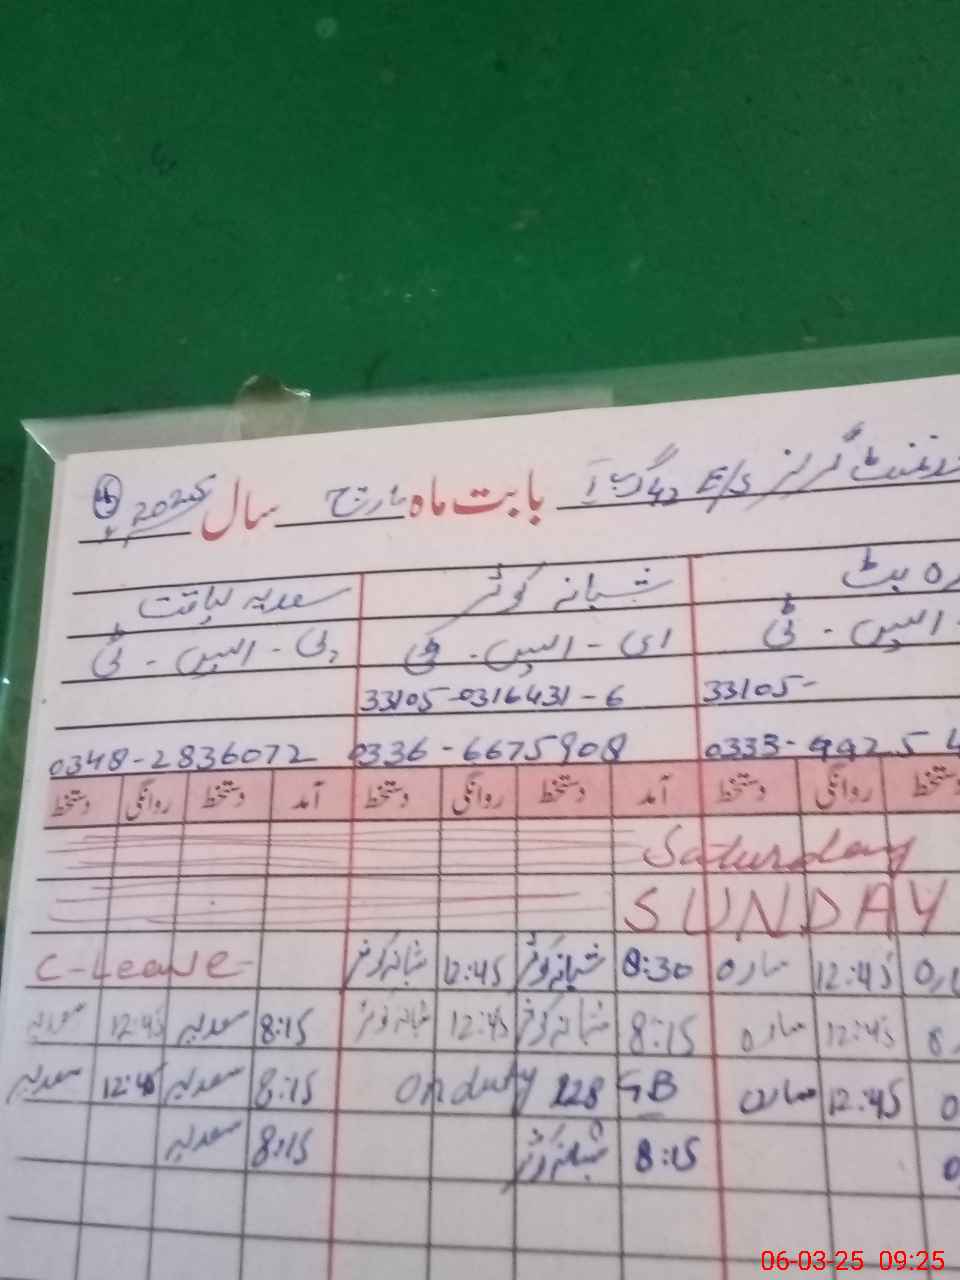 گرلز E/S 42 گ ب I بابت ماہ مارچ سال 2025
ہ بٹ شبانہ کوثر سعدیہ لیاقت
ایس - ٹی ای - ایس - ٹی پی - ایس - ٹی
33105- 33105-0316431-6
0333-9925 4 0336-6675908 0348-2836072
دستخط روانگی دستخط آمد دستخط روانگی دستخط آمد دستخط روانگی دستخط
Saturday
SUNDAY
12:45 سارہ 8:30 شبانہ کوثر 12:45 شبانہ کوثر C-Leave
12:45 سارہ 8:15 شبانہ کوثر 12:45 شبانہ کوثر 8:15 سعدیہ 12:45 سعدیہ
12:45 سارہ On duty 228 GB 8:15 سعدیہ 12:45 سعدیہ
8:15 شبانہ کوثر 8:15 سعدیہ
06-03-25 09:25